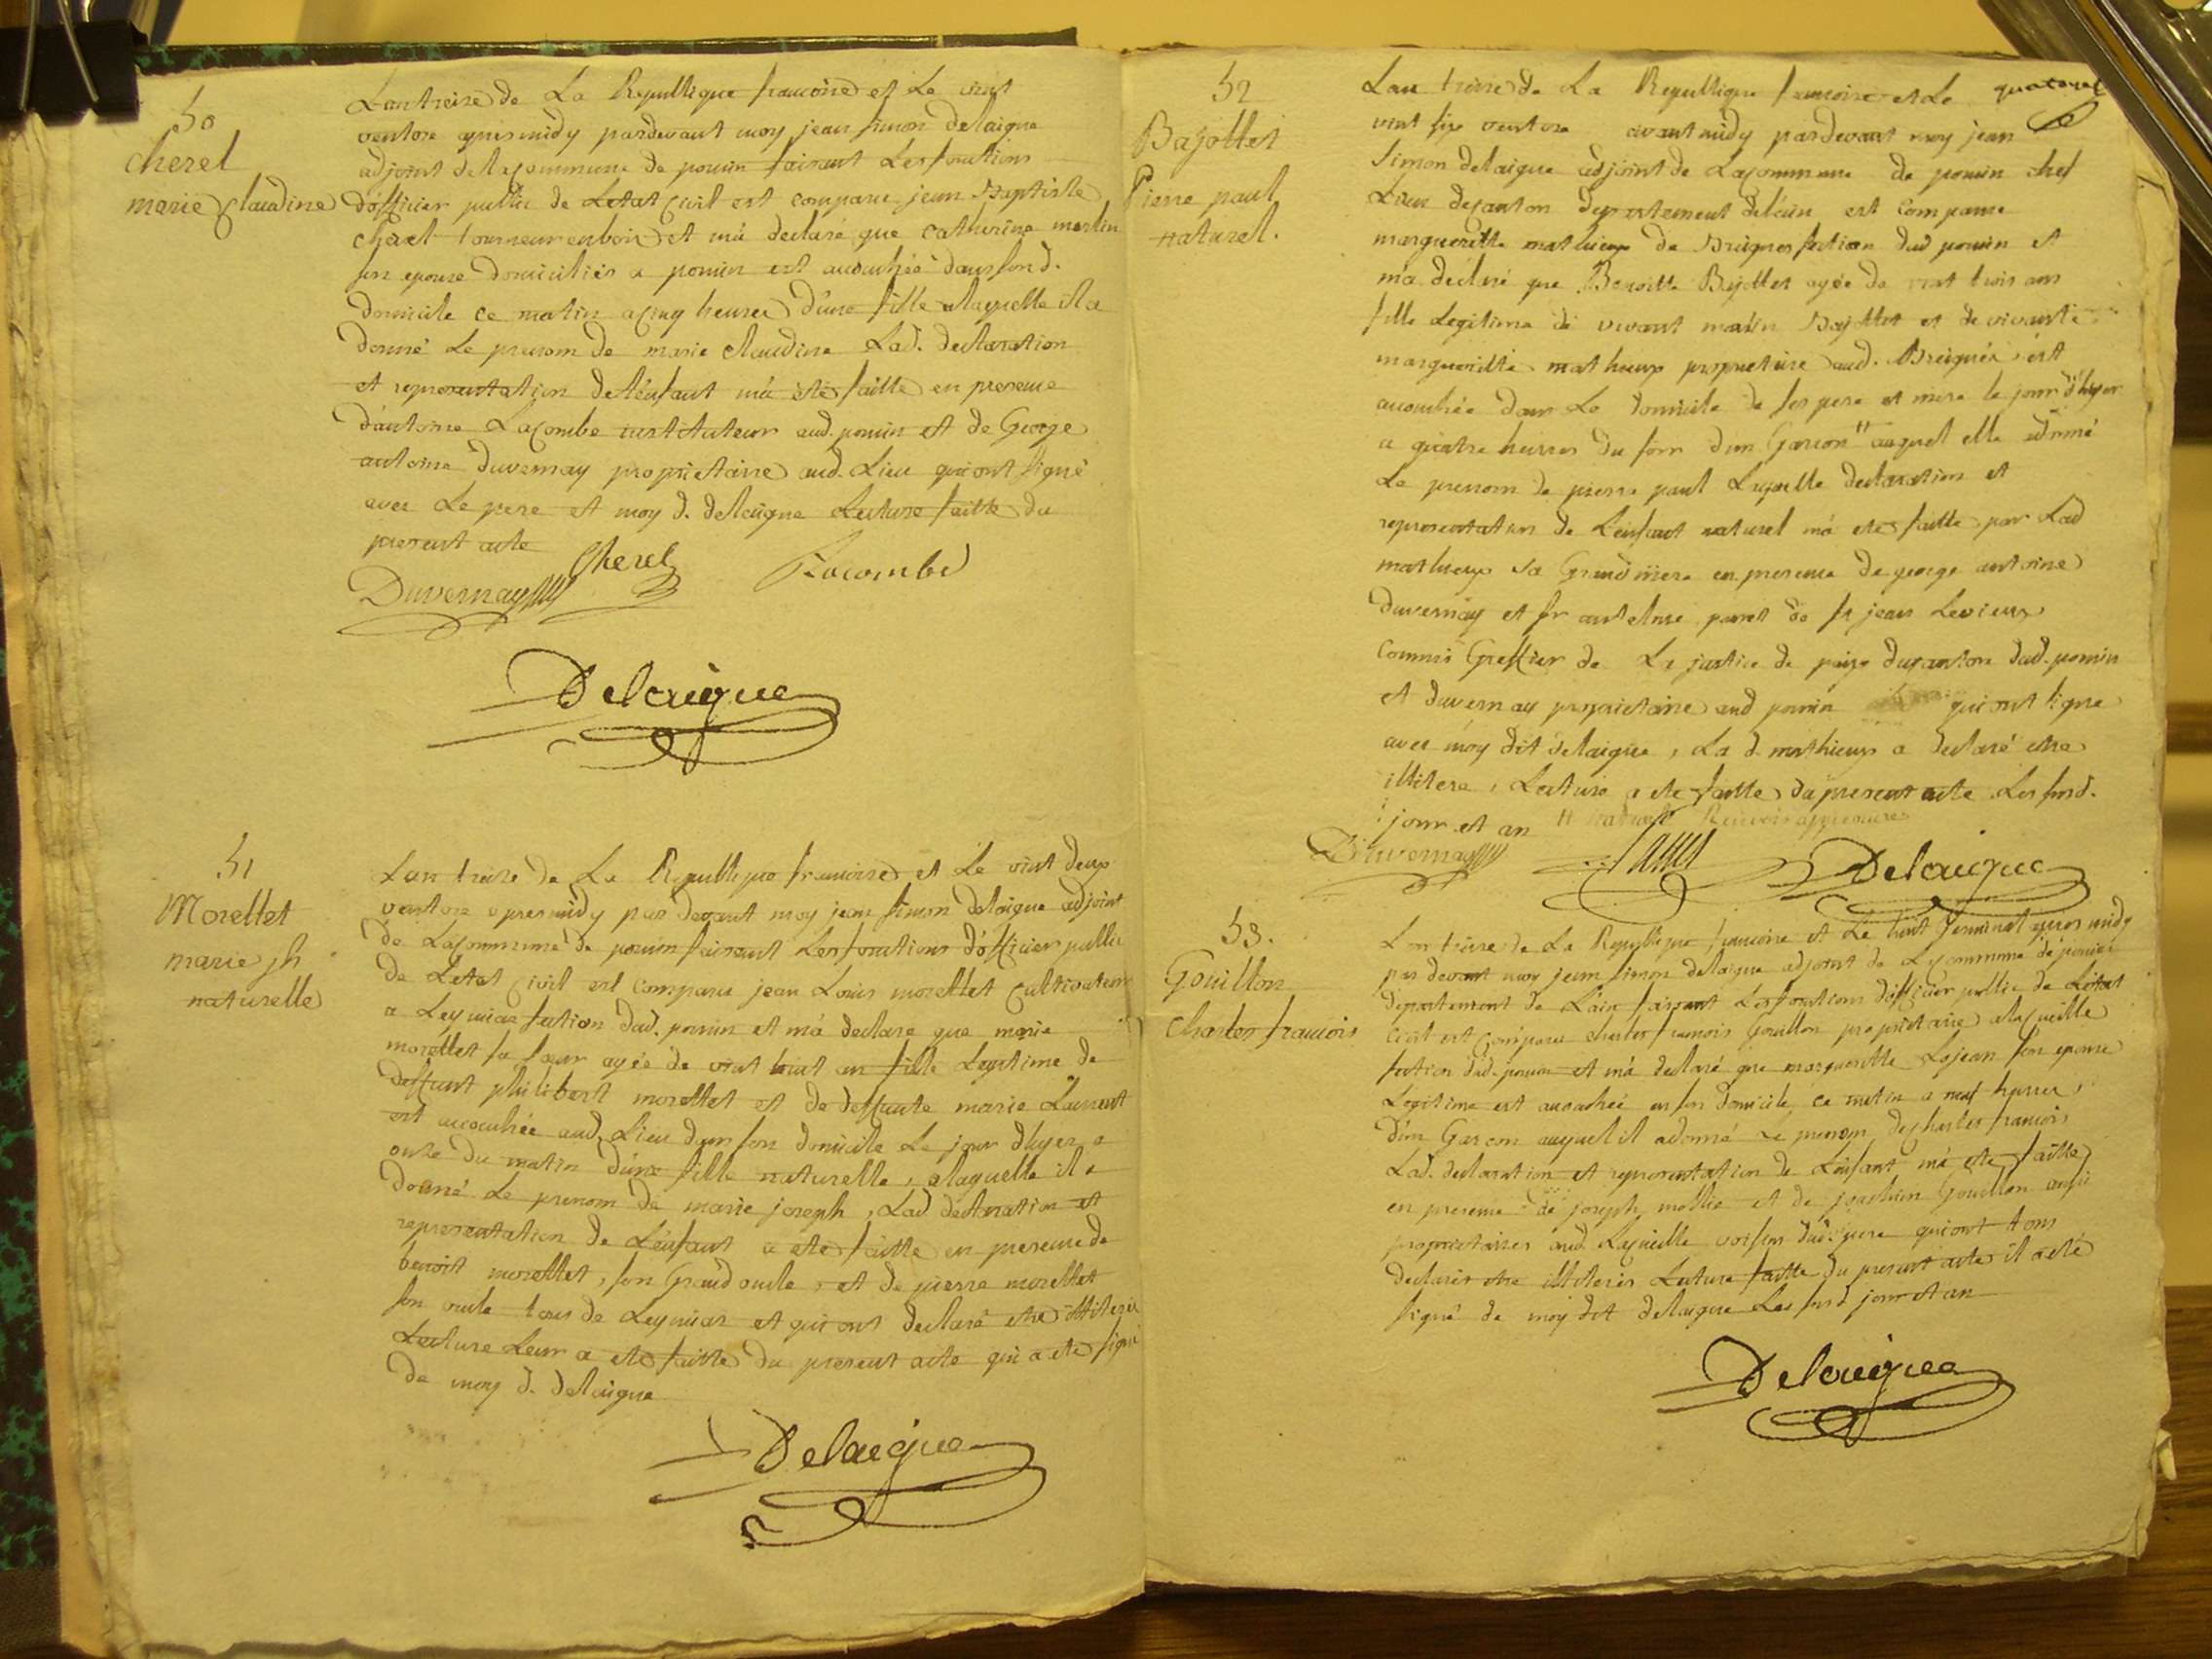 50
cherel
marie claudine
Lan treize de La Republique francoise et Le vint
ventose apresmidy pardevant moy jean simon delaigue
adjoint de la commune de poncin faisant Les fonctions
d'officier public de Letat civil est comparu jean Baptiste
cherel tourneur en bois et m'a declaré que catherine merlin
son epouse domiciliés a poncin est accouchée dans son d.
domicile ce matin a cinq heures d'une fille a laquelle il a
donné Le prenom de marie claudine Lad. declaration
et representation de l'enfant m'a eté faitte en presence
d'antoine Lacombe instituteur aud. poncin et de George
antoine Duvernay proprietaire aud. Lieu qui ont signé
avec Le pere et moy d. delaigue Lecture faitte du
present acte
Cherel Lacombe
Duvernay
Delaigue
51
Morellet
marie jh
naturelle
Lan treize de La Republique francoise et Le vint deux
ventose apresmidy par devant moy jean simon delaigue adjoint
de La commune de poncin faisant Les fonctions d'officier public
de Letat civil est comparu jean Louis morellet cultivateur
a Leymiat section dud. poncin et m'a declare que marie
morellet sa sœur agée de vint huit an fille Legitime de
deffunt philibert morellet et de deffunte marie Laurent
est accouchée aud. Lieu dans son domicile Le jour d'hyer a
onze du matin d'une fille naturelle, a laquelle il a
donné Le prenom de marie joseph, Lad declaration et
representation de L'enfant a eté faitte en presence de
benoit morellet, son Grand oncle, et de pierre morellet
son oncle tous de Leymiat et qui ont declaré etre illiterés
Lecture Leur a eté faitte du present acte qui a eté signé
de moy d. delaigue
Delaigue
52
Bajollet
Pierre paul
naturel.
Lan treize de La Republique francoise et Le quatorze
vint six ventose avant midy pardevant moy jean
simon delaigue adjoint de La commune de poncin chef
Lieu de canton departement de l'ain est comparue
margueritte mathieux de Breignes section dud poncin et
m'a declaré que Benoitte Bajollet agée de vint trois ans
fille Legitime de vivant Bajollet et de vivante
margueritte mathieux proprietaire aud. est
accouchée dans Le domicile de ses pere et mere le jour d'hyer
a quatre heures du soir d'un Garcon auquel elle a donné
Le prenom de pierre paul Laquelle declaration et
representation de L'enfant naturel m'a eté faitte par Lad
mathieux sa Grand mere en presence de george antoine
duvernay et jean Levieux
commis Greffier de La justice de paix du canton dud. poncin
et duvernay proprietaire aud poncin qui ont signe
avec moy dit delaigue, La d. mathieux a declaré etre
illitere, Lecture a eté faitte du present acte Les susd.
jour et an
Duvernay Delaigue
53.
Gouillon
charles francois
Lan treize de La Republique francoise et Le huit Germinal apres midy
par devant moy jean simon delaigue adjoint de La commune de poncin
departement de L'ain faisant Les fonctions d'officier public de Letat
civil est comparu charles francois Gouillon proprietaire a
section dud. poncin et m'a declaré que margueritte Lajean son epouse
Legitime est accouchée en son domicile ce matin a neuf heures
d'un Garcon auquel il a donné Le prenom de charles francois
Lad. declaration et representation de L'enfant m'a eté faitte
en presence de joseph et de joachim Gouillon aussi
proprietaires aud. voisin dud. pere qui ont tous
declarés etre illiterés Lecture faitte du present acte il a eté
signé de moy dit delaigue Les susd jour et an
Delaigue